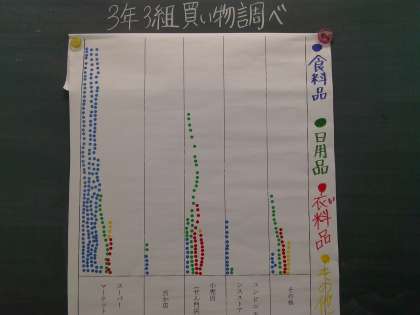 3年3組買い物調べ
●食料品
●日用品
●衣料品
い
●その他
スーパー
マーケット
小売店
(せん門店)
コンビニエ
ンスストア
その他